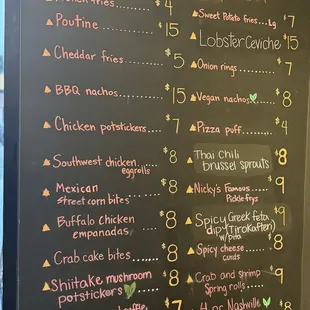 fries......$4
Poutine ..........$15
Cheddar fries..........$5
BBQ nachos..........$15
Chicken potstickers....$7
Southwest chicken eggrolls $8
Mexican street corn bites $8
Buffalo Chicken empanadas $8
Crab cake bites....$8
Shiitake mushroom potstickers $8
$7
Sweet Potato fries...Lg $7
Lobster Ceviche $15
Onion rings..........$7
Vegan nachos $8
Pizza puff..........$4
Thai Chili brussel sprouts $8
Nicky's Famous Pickle frys $9
Spicy Greek feta dip (Tirokafteri) w/ pita $9
Spicy cheese curds $8
Crab and shrimp Spring rolls $9
4 pc Nashville $8